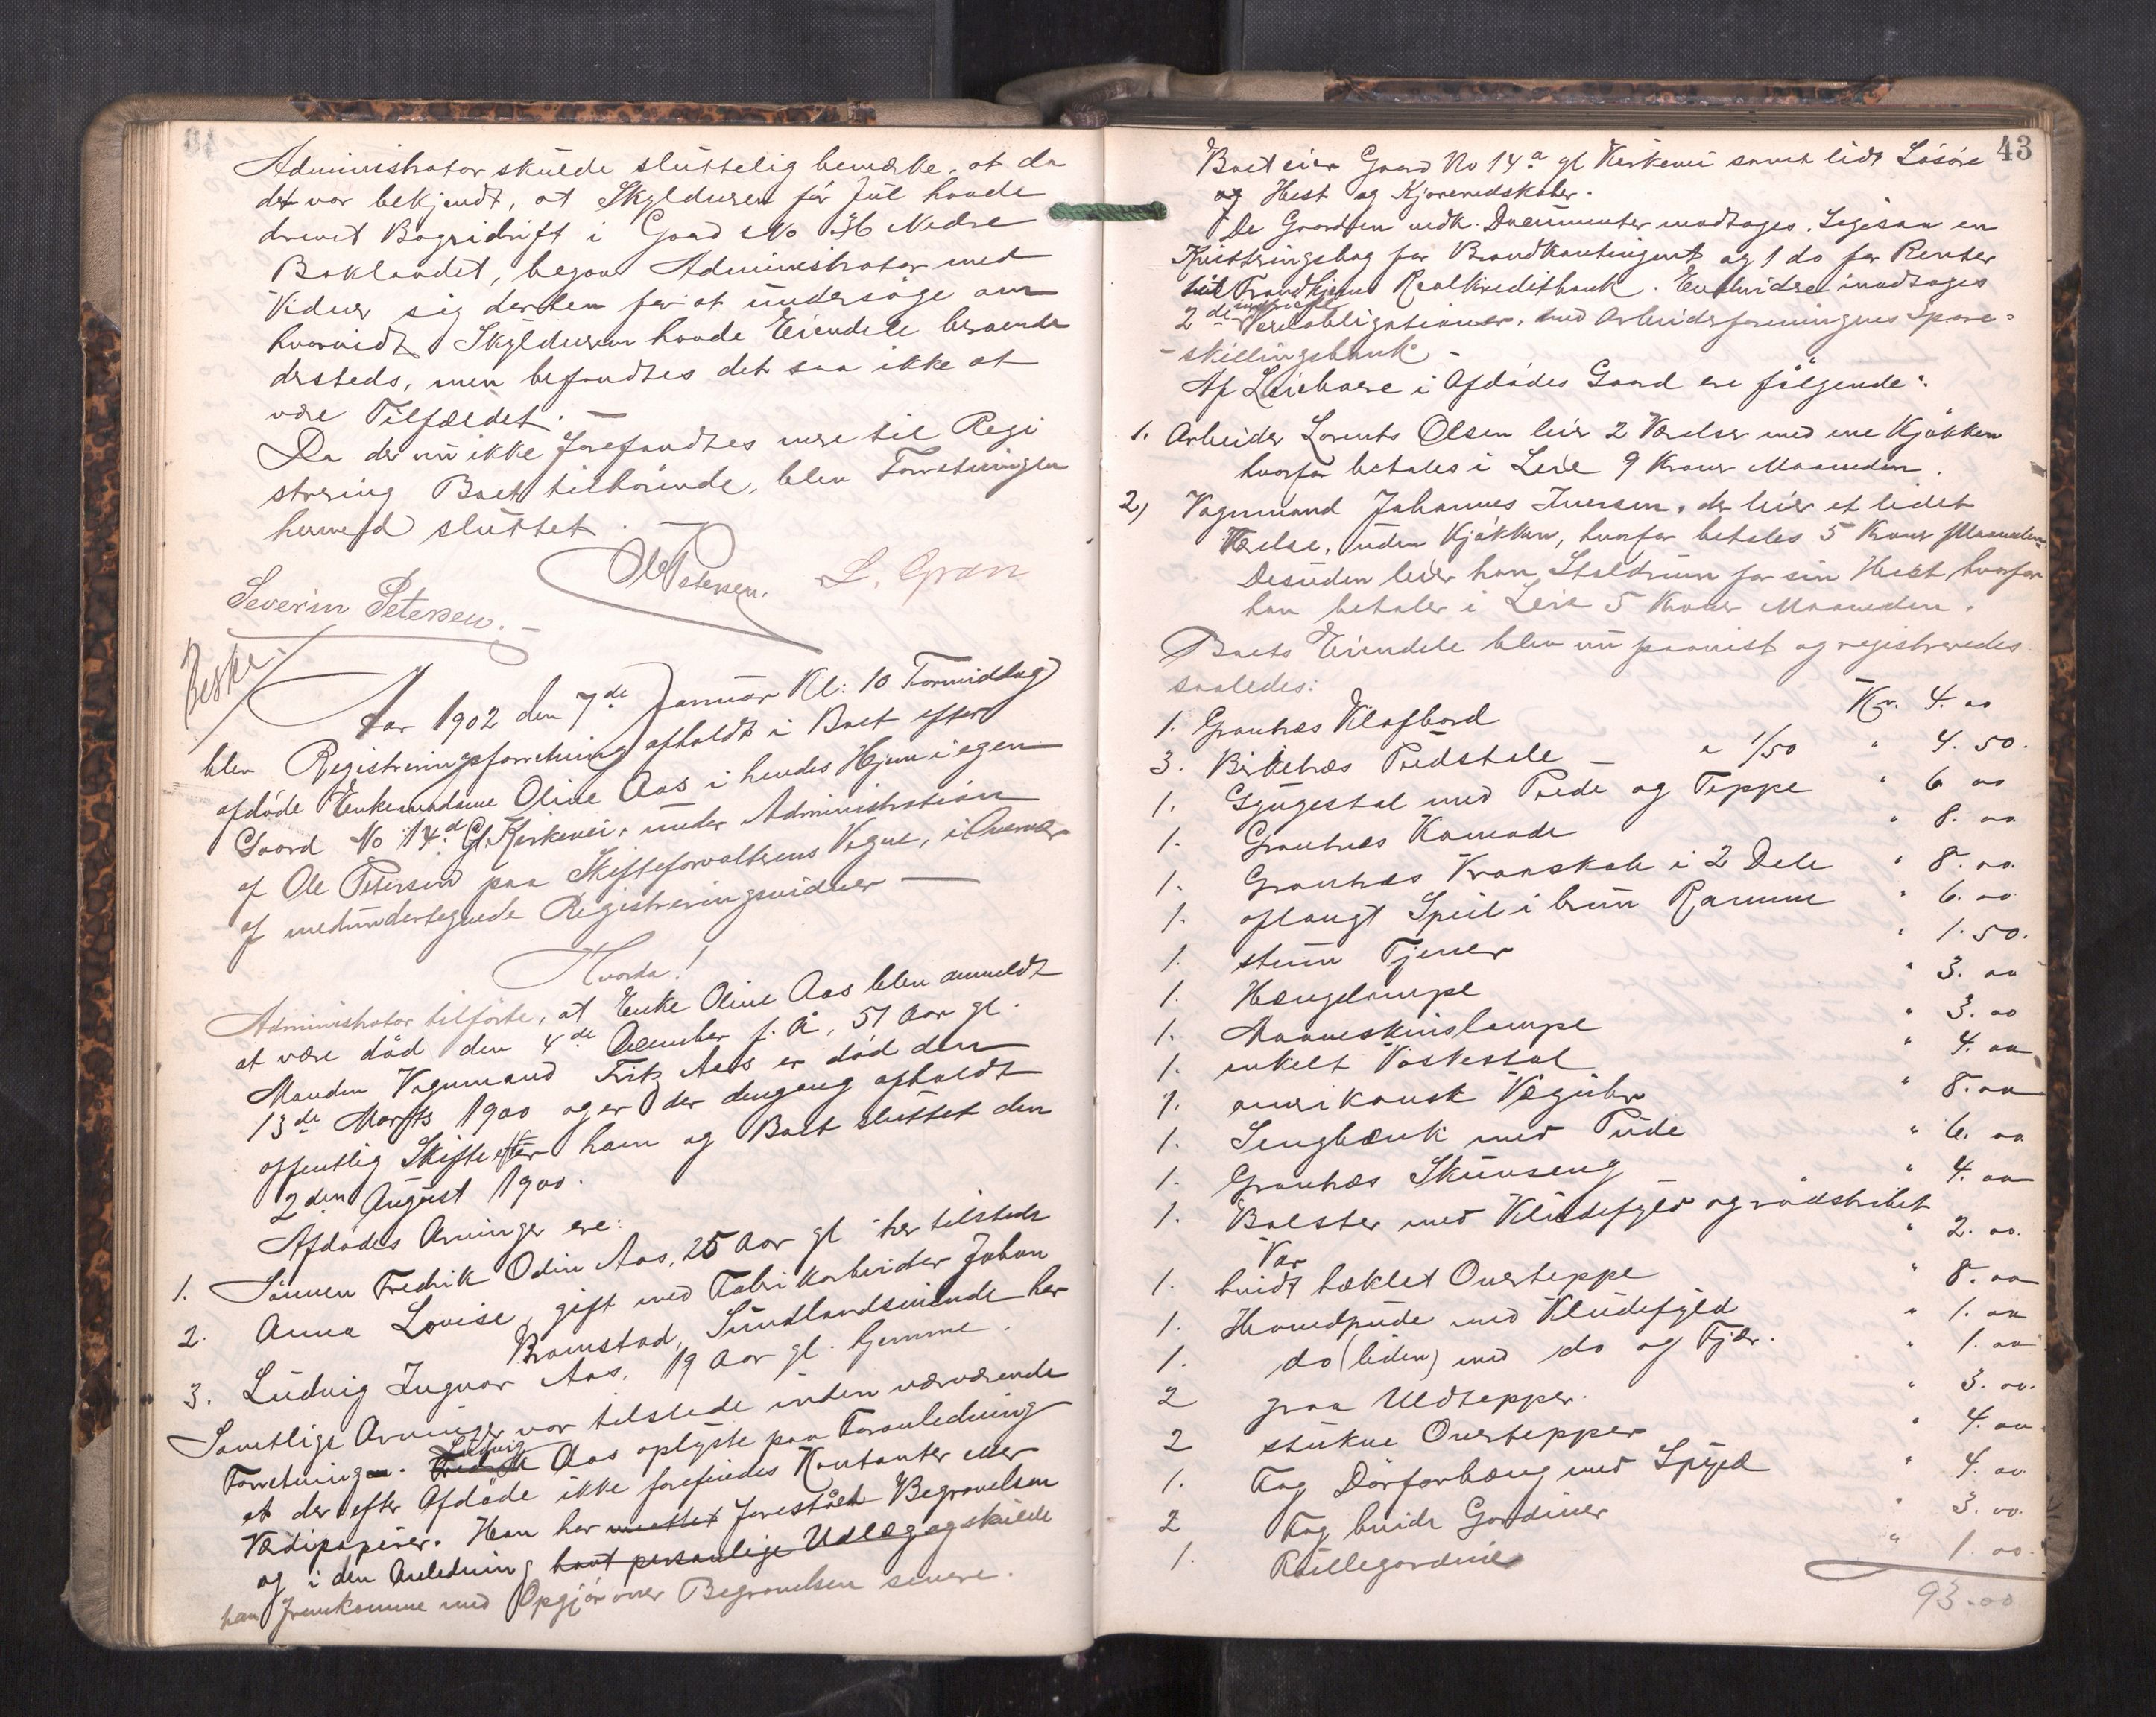 Administrator skulde sluttelig bemærke, at da
det var bekjendt, at Skylderen før Jul havde
drevet Bageridrift i Gaard No 36 Nedre
Baklandet, begav Administrator med
Vidner sig derhen for at undersøge om
hvorvidt Skylderen havde Eiendele beroende
dersteds, men befandtes det saa ikke at
være Tilfældet. —
Da der nu ikke forefandtes mere til Regi
strering Boet tilhörende, blev Forretningen
hermed sluttet. —
Ole Petersen. L. Gran
Severin Petersen. —
Beske.
Aar 1902 den 7de Januar Kl: 10 Formiddag
blev Registreringsforretning afholdt i Boet efter
afdöde Enkemadame Oline Aas i hendes Hjem i egen
Gaard No 14d Gl. Kirkevei, under Administration
af Ole Petersen paa Skifteforvalterens Vegne, i Overvær
af medundertegnede Registreringsvidner —
Hvorda!
Administrator tilførte, at Enke Oline Aas blev anmeldt
at være död den 4de December f. Å, 51 Aar gl.
Manden Vognmand Fritz Aas er död den
13de Marts 1900 og er der dengang afholdt
offentlig Skifte efter ham og Boet sluttet den
2den August 1900.
Afdödes Arvinger ere:
1. Sönnen Fredrik Odin Aas, 25 Aar gl her tilstede
2. Anna Lovise, gift med Fabrikarbeider Johan
Bromstad, Sundlandsminde her
3. Ludvig Ingvar Aas, 19 Aar gl. hjemme.
Samtlige Arvinger var tilstede under nærværende
Forretning. Ludvig Aas oplyste paa Foranledning
at der efter Afdöde ikke forefindes Kontanter eller
Værdipapirer. Han har mottet forestået Begravelsen
og i den Anledning havt personlige Udlæg og skulde
han fremkomme med Opgjör over Begravelsen senere.
43
Boet eier Gaard No 14a gl Kirkevei samt lidt Lösöre
og Hest og Kjøreredskaber.
De Gaarden vedk. Documenter modtoges. Ligesaa en
Kvitteringsbog for Brandkontingent og 1 do for Renter
til Trondhjems Realkreditbank. Endvidere modtoges
2de indfriede Panteobligationer, med Arbeiderforeningens Spare-
- skillingsbank -
Af Leieboere i Afdödes Gaard ere fölgende:
1. Arbeider Lorents Olsen leier 2 Værelser med ene Kjökken
hvorfor betales i Leie 9 Kroner Maaneden.
2) Vognmand Johannes Iversen, der leier et lidet
Værelse, uden Kjökken, hvorfor betales 5 Kroner Maaneden.
Desuden leier han Staldrum for sin Hest, hvorfor
han betaler i Leie 5 Kroner Maaneden.
Boets Eiendele blev nu paavist og registreredes
saaledes:
1. Grantræs Klafbord Kr. 4. 00
3. Birketræs Pudestole — a 1/50 " 4. 50.
1. Gyngestol med Pude og Teppe " 6 00
1. Grantræs Komode " 8. 00
1. Grantræs Kronskab i 2 Dele " 8. 00.
1. aflangt Speil i brun Ramme " 6. 00
1. stum Tjener " 1. 50.
1. Hængelampe " 3. 00
1. Maaneskinslampe " 3. 00
1. enkelt Vaskestol " 4. 00
1. amerikansk Vægühr " 8. 00
1. Sengbænk med Pude " 6. 00
1. Grantræs Skuvseng " 4. 00
1. Bolster med Kludefyld og rödstribet
Var " 2. 00.
1. hvidt hæklet Overteppe " 8. 00
1. Hovedpude med Kludefyld " 1. 00
1. do (liden) med do og Fjær. " 1. 00
2 graa Uldtepper. " 3. 00.
2 stukne Overtepper " 4. 00
1. Fag Dörforhæng med Spyd " 4. 00
2 Fag hvide Gardiner " 3. 00.
1. Rullegardine " 1. 00.
93.00